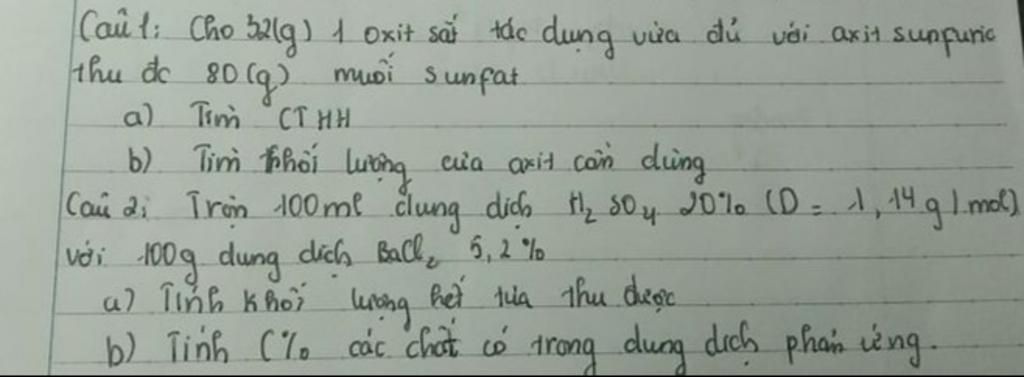 Câu 1: Cho 32(g) 1 oxit sắt tác dụng vừa đủ với axit sunfuric
thu đc 80(g) muối sunfat
a) Tìm CTHH
b) Tìm khối lượng của axit cần dùng
Câu 2: Trộn 100ml dung dịch H₂SO₄ 20% (D = 1,14 g/mol)
với 100g dung dịch BaCl₂ 5,2%
a) Tính khối lượng kết tủa thu được
b) Tính C% các chất có trong dung dịch phản ứng.